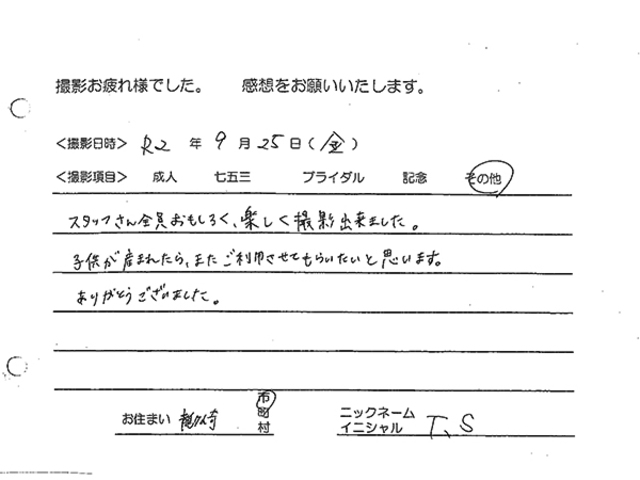 撮影お疲れ様でした。　感想をお願いいたします。
＜撮影日時＞ R2 年 9 月 25 日（金）
＜撮影項目＞ 成人 七五三 ブライダル 記念 その他
スタッフさん全員おもしろく、楽しく撮影出来ました。
子供が産まれたら、またご利用させてもらいたいと思います。
ありがとうございました。
お住まい 龍ケ崎 市 町 村
ニックネーム イニシャル T、S